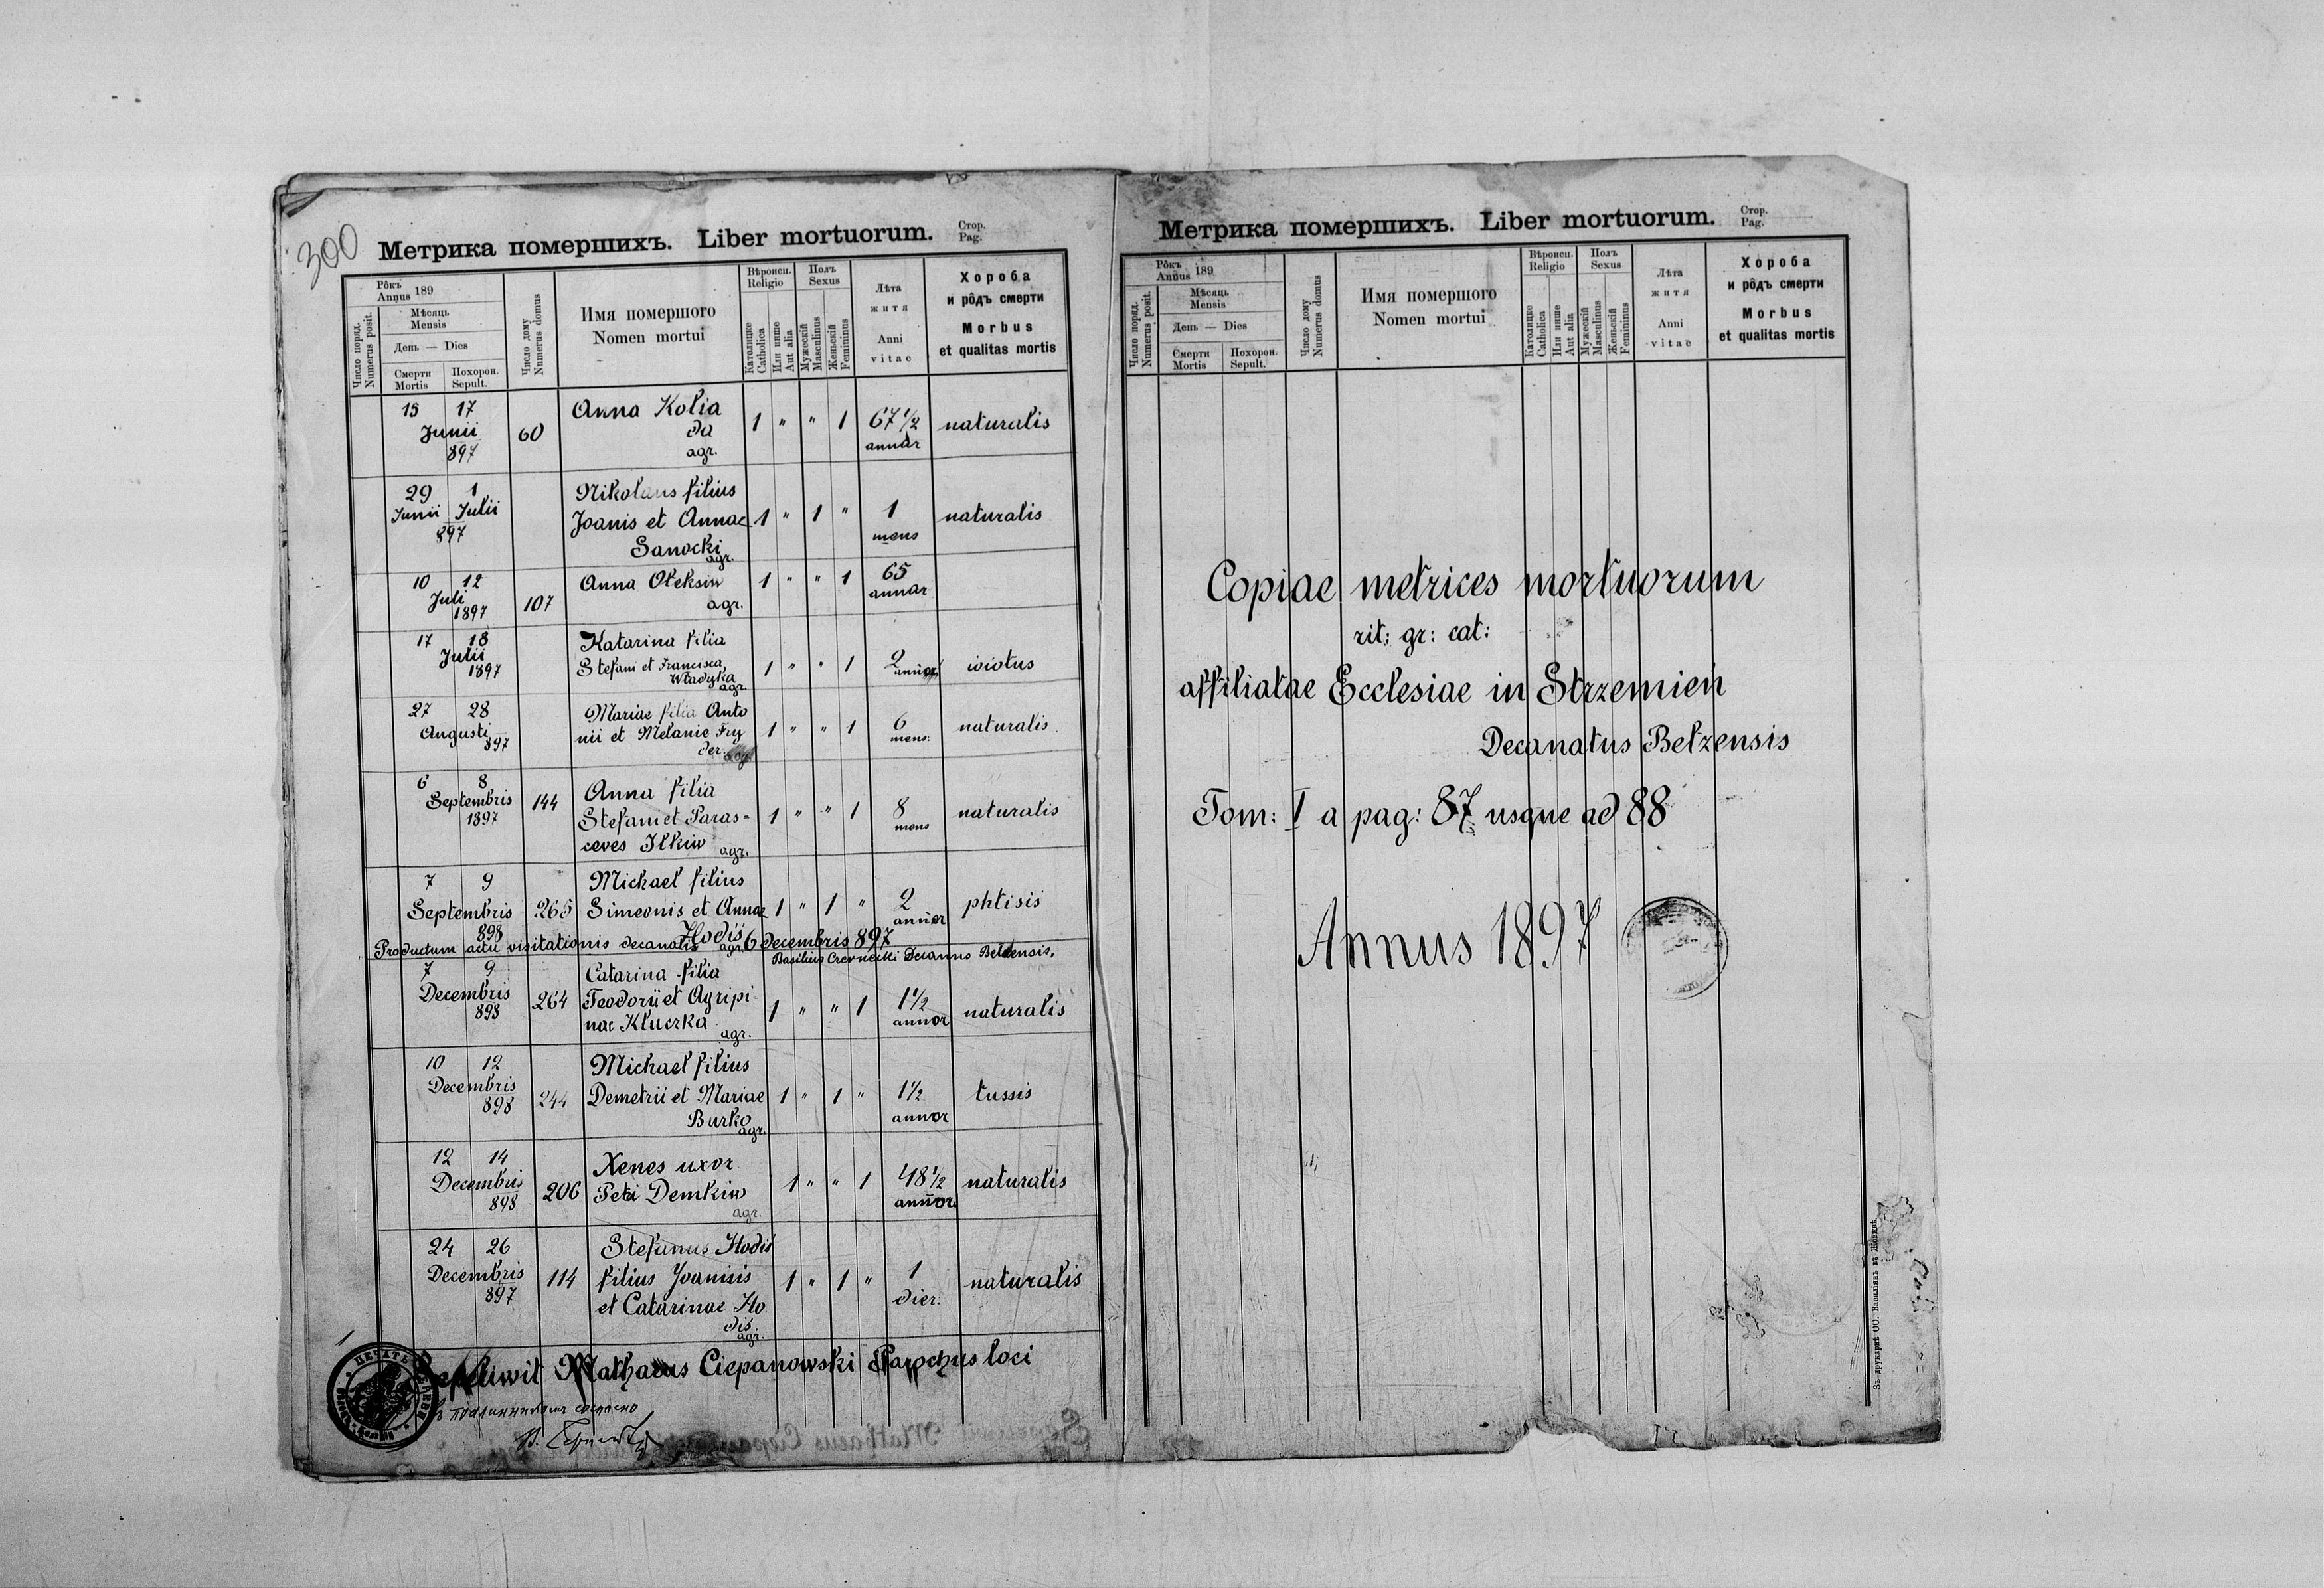 300
Метрика помершихъ. Liber mortuorum.
Стор.
Pag.
Число поряд.
Numerus posit.
Рôкъ
Annus 189
Мѣсяць
Mensis
День — Dies
Смерти
Mortis
Похорон.
Sepult.
Число дому
Numerus domus
Имя помершого
Nomen mortui
Вѣроисп.
Religio
Католицке
Catholica
Или инше
Aut alia
Полъ
Sexus
Мужескій
Masculinus
Женьскій
Femininus
Лѣта
житя
Anni
vitae
Хороба
и рôдъ смерти
Morbus
et qualitas mortis
15 17
Junii
897
60
Anna Kolia
da
agr.
1 " " 1
67 1/2
annor
naturalis
29 1
Junii Julii
897
Nikolaus filius
Joanis et Annae
Sanocki
agr.
1 " 1 "
1
mens
naturalis
10 12
Juli
1897
107
Anna Oleksiw
agr.
1 " " 1
65
annor
17 18
Julii
1897
Katarina filia
Stefani et Francisca
Wladyka
agr.
1 " " 1
2
annor
27 28
Augusti
897
Mariae filia Anto
nii et Melanie Fry
der.
1 " " 1
6
mens.
naturalis
6 8
Septembris
1897
144
Anna filia
Stefani et Paras=
ceves Ilkiw agr.
1 " " 1
8
mens
naturalis
7 9
Septembris
898
265
Michael filius
Simeonis et Annae
Hodis
agr.
1 " 1 "
2
annor
phtisis
Productum actu visitationis decanalis 6 Decembris 897
Basilius Decanus
7 9
Decembris
898
264
Catarina filia
Teodorii et Agripi-
nae Kluczka
agr.
1 " " 1
1 1/2
annor
naturalis
10 12
Decembris
898
244
Michael filius
Demetrii et Mariae
Burko
agr.
1 " 1 "
1 1/2
annor
tussis
12 14
Decembris
898
206
Xenes uxor
Petri Demkiw
agr.
1 " " 1
48 1/2
annor
naturalis
24 26
Decembris
897
114
Stefanus Hodis
filius Joanisis
et Catarinae Ho
dis
agr.
1 " 1 "
1
dier.
naturalis
Sepeliwit Mathaeus Ciepanowski Parochus loci
согласно
ПЕЧАТЬ
Метрика помершихъ. Liber mortuorum.
Стор.
Pag.
Число поряд.
Numerus posit.
Рôкъ
Annus 189
Мѣсяць
Mensis
День — Dies
Смерти
Mortis
Похорон.
Sepult.
Число дому
Numerus domus
Имя помершого
Nomen mortui
Вѣроисп.
Religio
Католицке
Catholica
Или инше
Aut alia
Полъ
Sexus
Мужескій
Masculinus
Женьскій
Femininus
Лѣта
житя
Anni
vitae
Хороба
и рôдъ смерти
Morbus
et qualitas mortis
Copiae metrices mortuorum
rit: gr: cat:
affiliatae Ecclesiae in Strzemień
Decanatus Belzensis
Tom: I a pag: 87 usque ad 88
Annus 1897
Зъ друкарнѣ ОО. Василіянъ въ Жовквѣ.